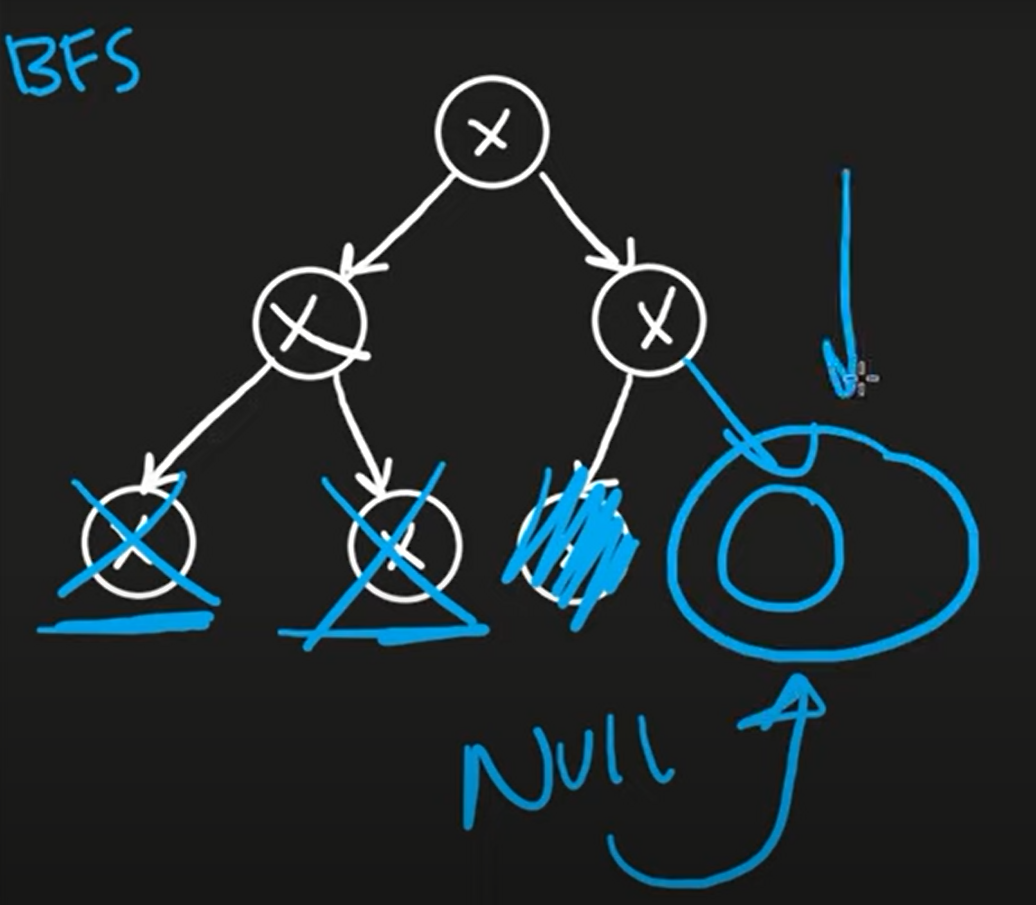 BFS
X
X
X
X
X
Null